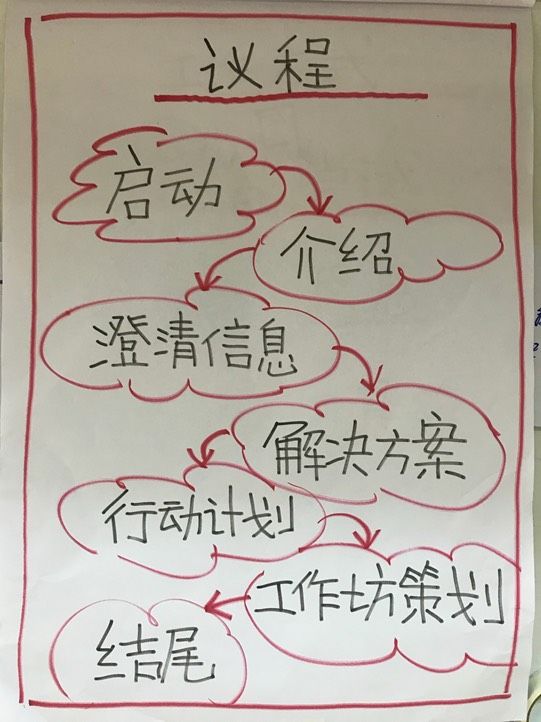 议程
启动
介绍
澄清信息
解决方案
行动计划
工作坊策划
结尾